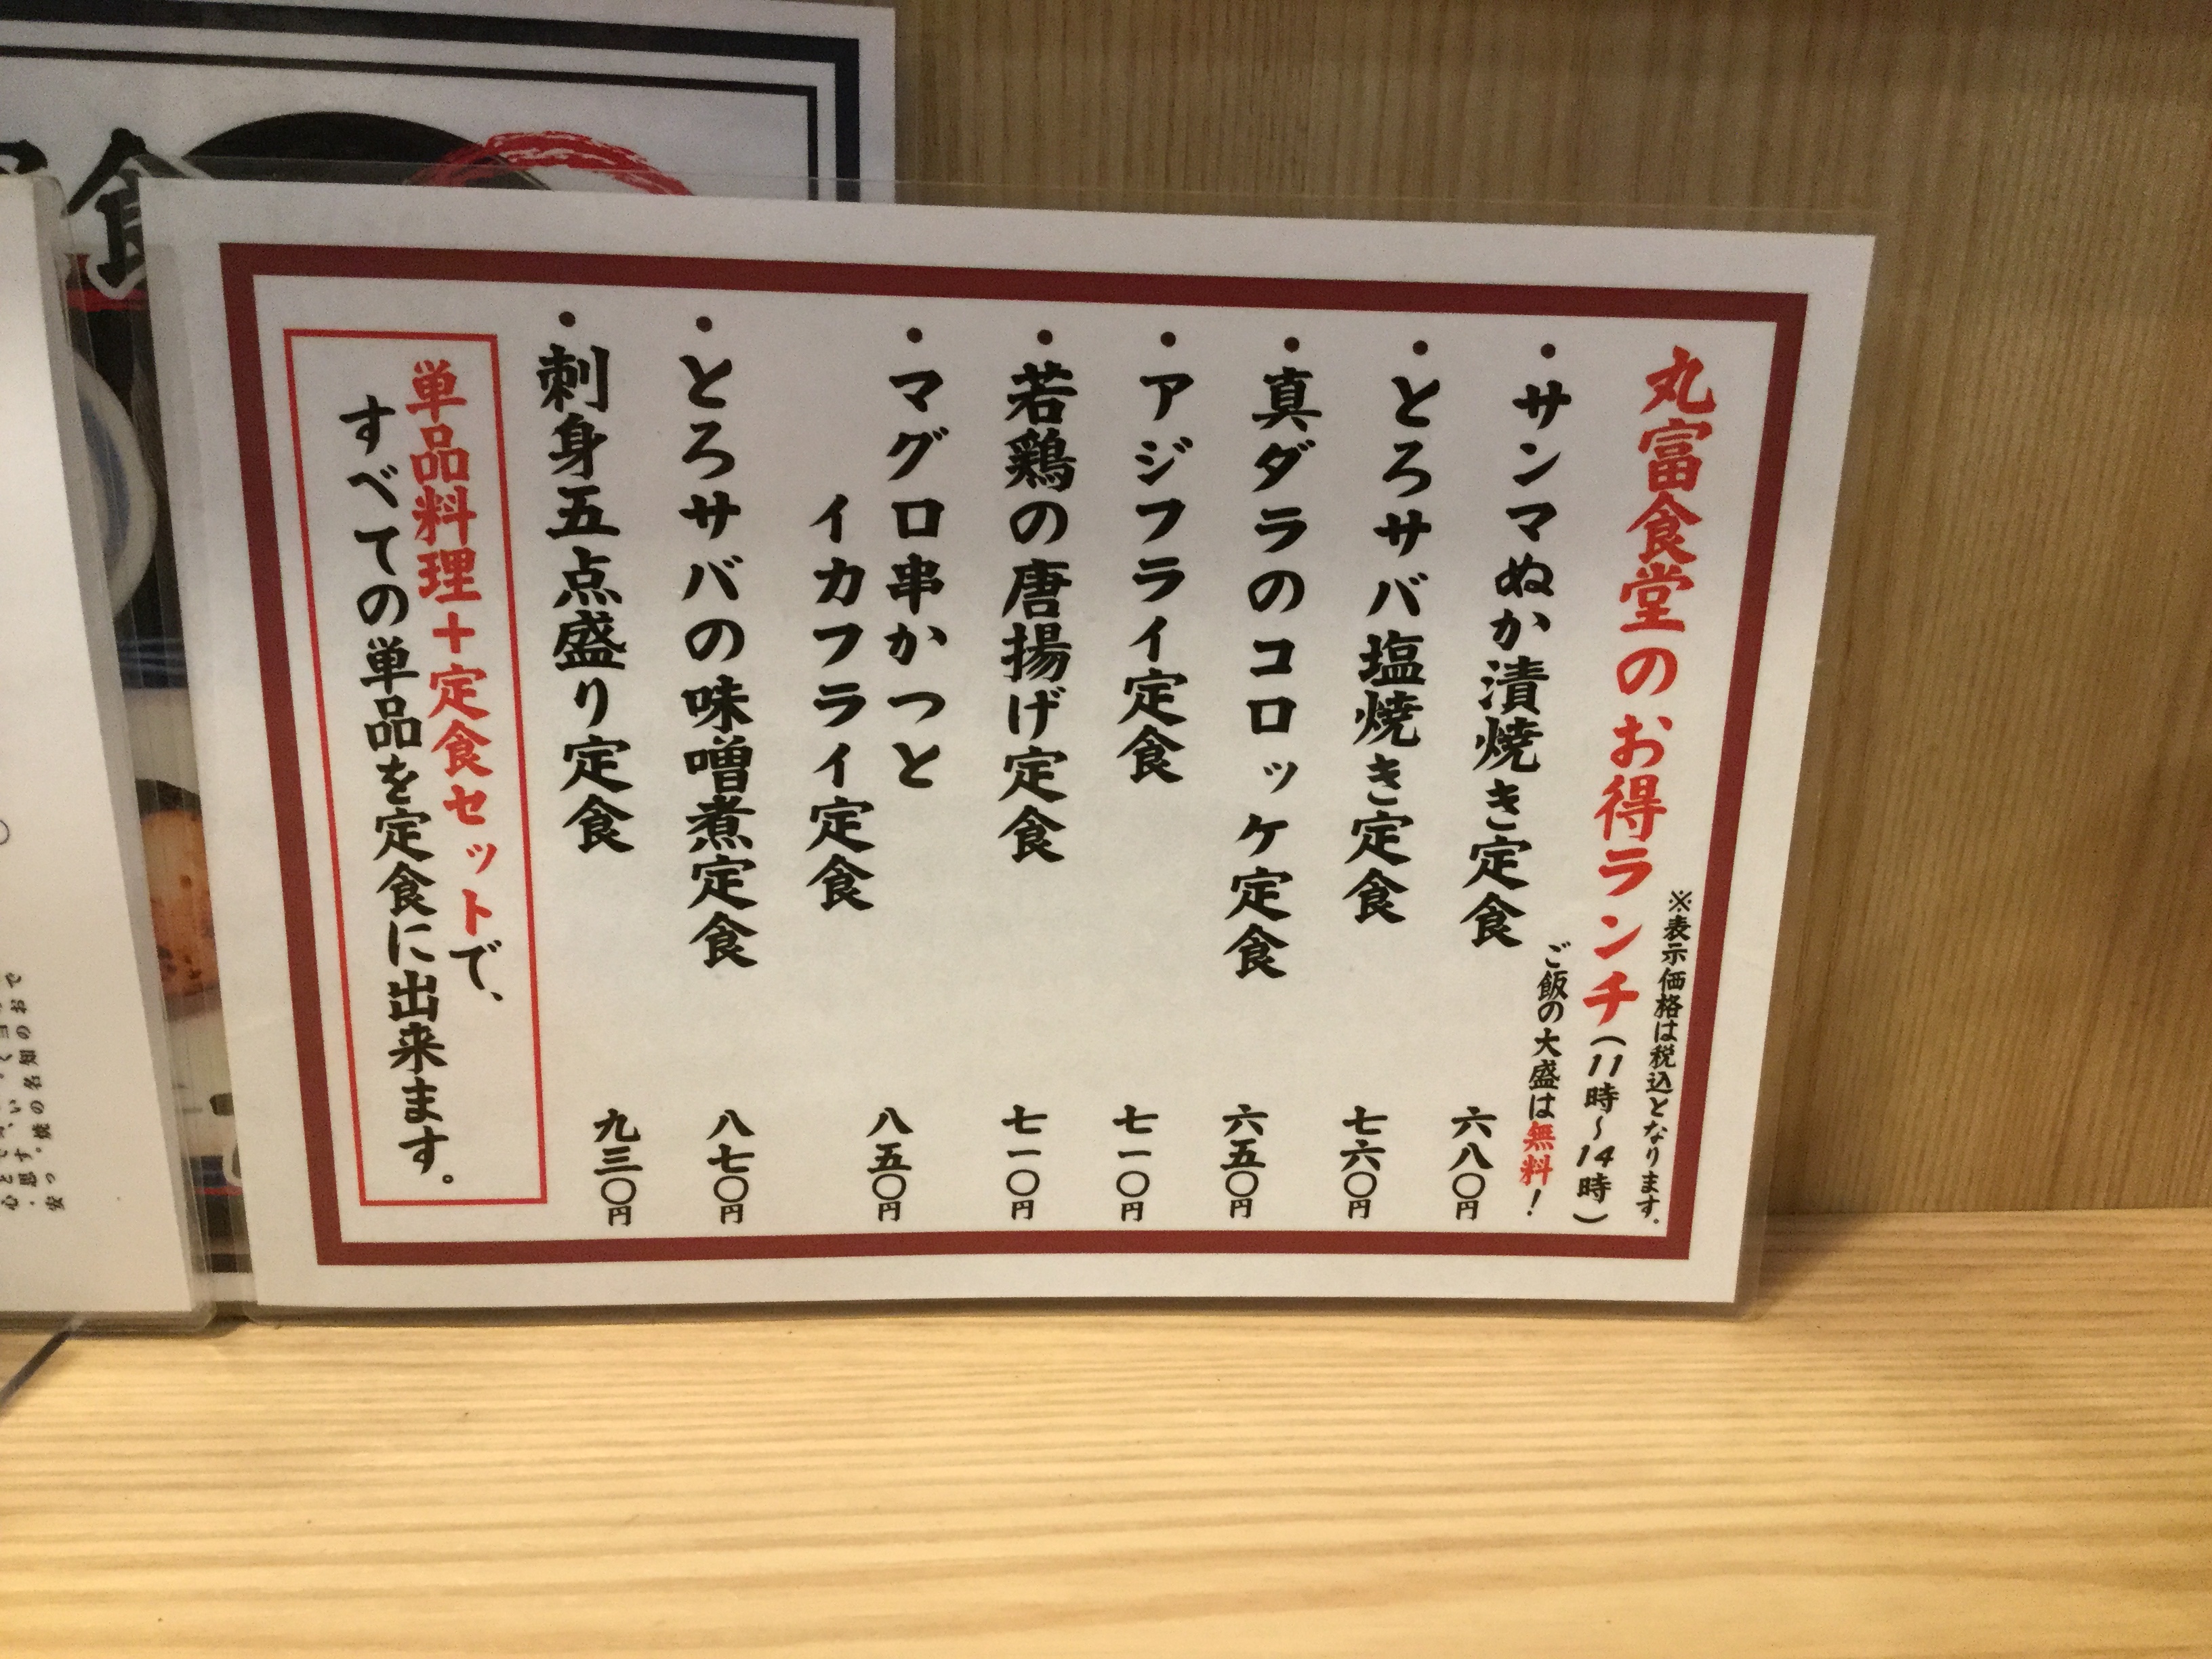 ※表示価格は税込となります。
丸富食堂のお得ランチ（11時～14時）
ご飯の大盛は無料！
・サンマぬか漬焼き定食 六八〇円
・とろサバ塩焼き定食 七六〇円
・真ダラのコロッケ定食 六五〇円
・アジフライ定食 七一〇円
・若鶏の唐揚げ定食 七一〇円
・マグロ串かつと
イカフライ定食 八五〇円
・とろサバの味噌煮定食 八七〇円
・刺身五点盛り定食 九三〇円
単品料理＋定食セットで、
すべての単品を定食に出来ます。
食